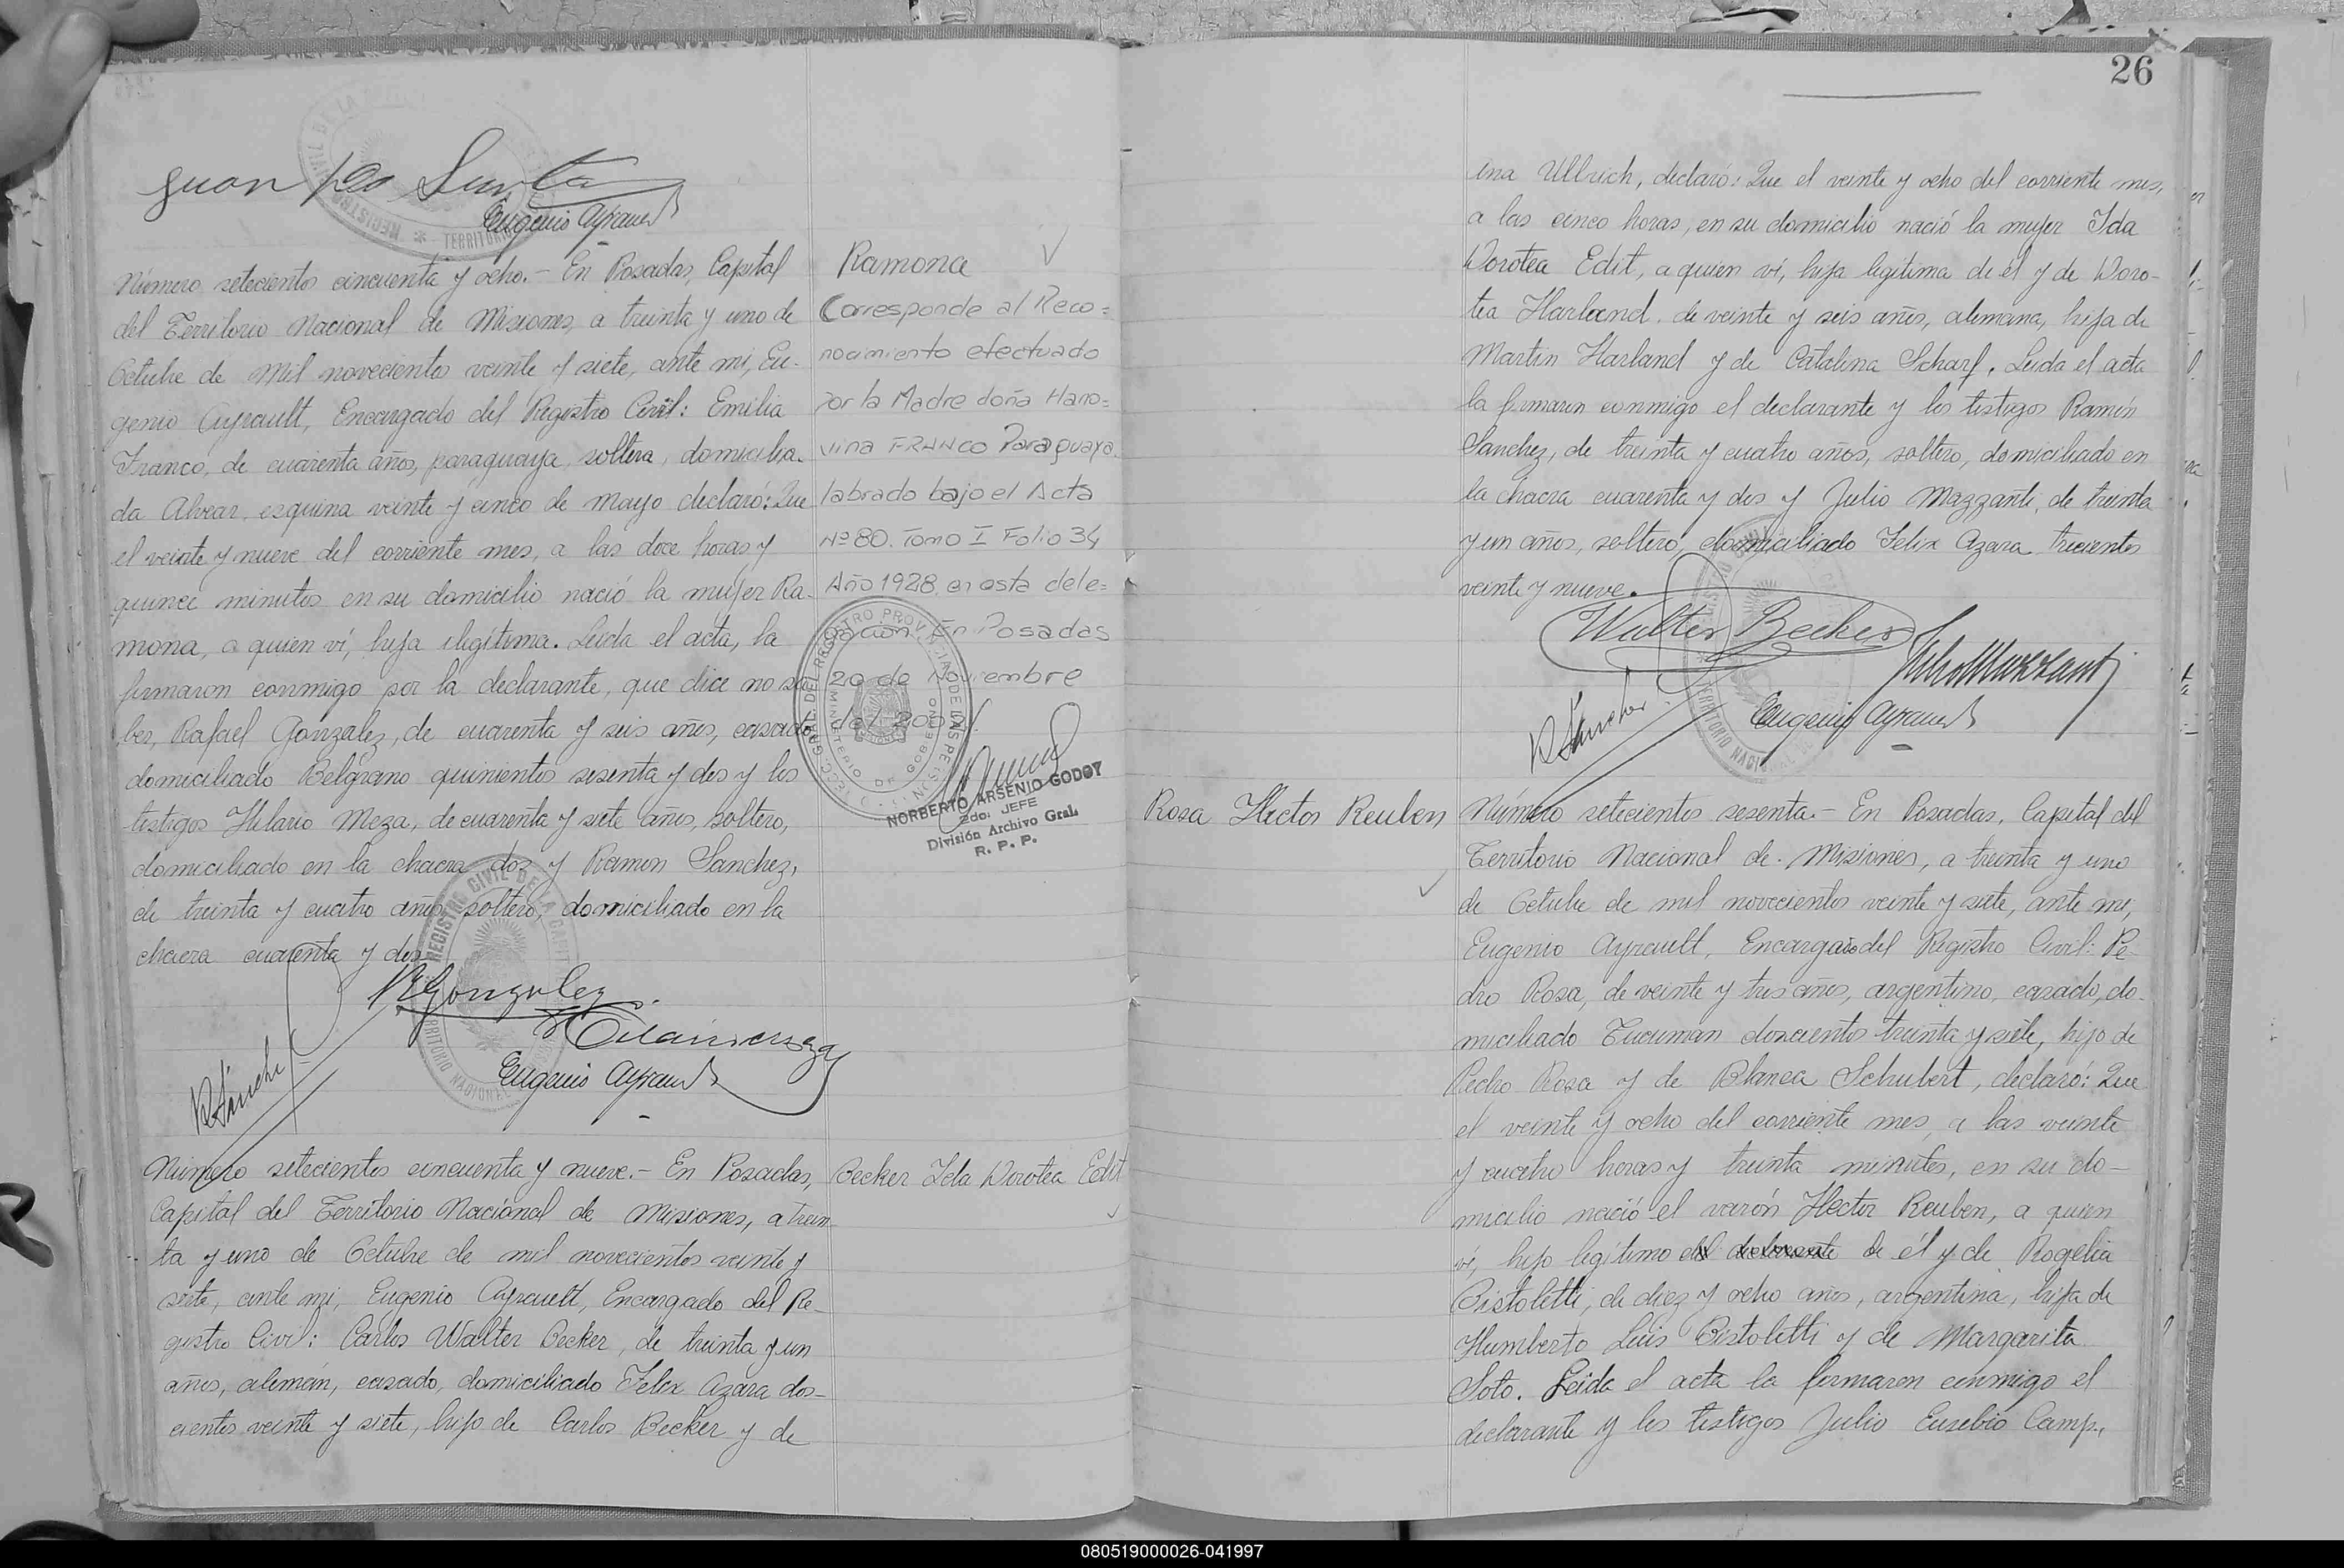 Juan
Eugenio Ayrault
Número setecientos cincuenta y ocho.- En Posadas, Capital
del Territorio Nacional de Misiones, a treinta y uno de
Octubre de mil novecientos veinte y siete, ante mi, Eu-
genio Ayrault, Encargado del Registro Civil: Emilia
Franco, de cuarenta años, paraguaya, soltera, domicilia-
da Alvear esquina veinte y cinco de mayo declaró: Que
el veinte y nueve del corriente mes, a las doce horas y
quince minutos en su domicilio nació la mujer Ra-
mona, a quien ví, hija ilegítima. Leida el acta, la
firmaron conmigo por la declarante, que dice no sa-
ber, Rafael Gonzalez, de cuarenta y seis años, casado,
domiciliado Belgrano quinientos sesenta y dos y los
testigos Hilario Meza, de cuarenta y siete años, soltero,
domiciliado en la chacra dos y Ramon Sanchez,
de treinta y cuatro años, soltero, domiciliado en la
chacra cuarenta y dos
R Gonzalez
R Sanchez
Eugenio Ayrault
Ramona
Corresponde al Reco=
nocimiento efectuado
por la Madre doña Hano=
vina FRANCO Paraguaya
labrado bajo el Acta
Nº 80. Tomo I Folio 34
Año 1928, en esta dele=
gación En Posadas
20 de Noviembre
NORBERTO ARSENIO GODOY
2do. JEFE
División Archivo Gral.
R. P. P.
Número setecientos cincuenta y nueve.- En Posadas,
Capital del Territorio Nacional de Misiones, a trein
ta y uno de Octubre de mil novecientos veinte y
siete, ante mi, Eugenio Ayrault, Encargado del Re-
gistro Civil: Carlos Walter Becker, de treinta y un
años, alemán, casado, domiciliado Felix Azara dos-
cientos veinte y siete, hijo de Carlos Becker y de
Becker Ida Dorotea Edit
26
una Ullrich, declaró: Que el veinte y ocho del corriente mes,
a las cinco horas, en su domicilio nació la mujer Ida
Dorotea Edit, a quien ví, hija legítima de él y de Doro-
tea Harland, de veinte y seis años, alemana, hija de
Martin Harland y de Catalina Scharf. Leida el acta
la firmaron conmigo el declarante y los testigos Ramón
Sanchez, de treinta y cuatro años, soltero, domiciliado en
la chacra cuarenta y dos y Julio Mazzante, de treinta
y un años, soltero, domiciliado Felix Azara trecientos
veinte y nueve.
Walter Becker
Julio Mazzanti
R Sanchez
Eugenio Ayrault
Rosa Hector Reuben
Número setecientos sesenta.- En Posadas, Capital del
Territorio Nacional de Misiones, a treinta y uno
de Octubre de mil novecientos veinte y siete, ante mi,
Eugenio Ayrault, Encargado del Registro Civil: Pe-
dro Rosa, de veinte y tres años, argentino, casado, do-
miciliado Tucuman doscientos treinta y siete, hijo de
Pedro Rosa y de Blanca Schubert, declaró: Que
el veinte y ocho del corriente mes, a las veinte
y cuatro horas y treinta minutos, en su do-
micilio nació el varón Hector Reuben, a quien
ví, hijo legítimo del declarante de él y de Rogelia
Bistoletti, de diez y ocho años, argentina, hija de
Humberto Luis Bistoletti y de Margarita
Soto. Leida el acta la firmaron conmigo el
declarante y los testigos Julio Eusebio Camp.
080519000026-041997